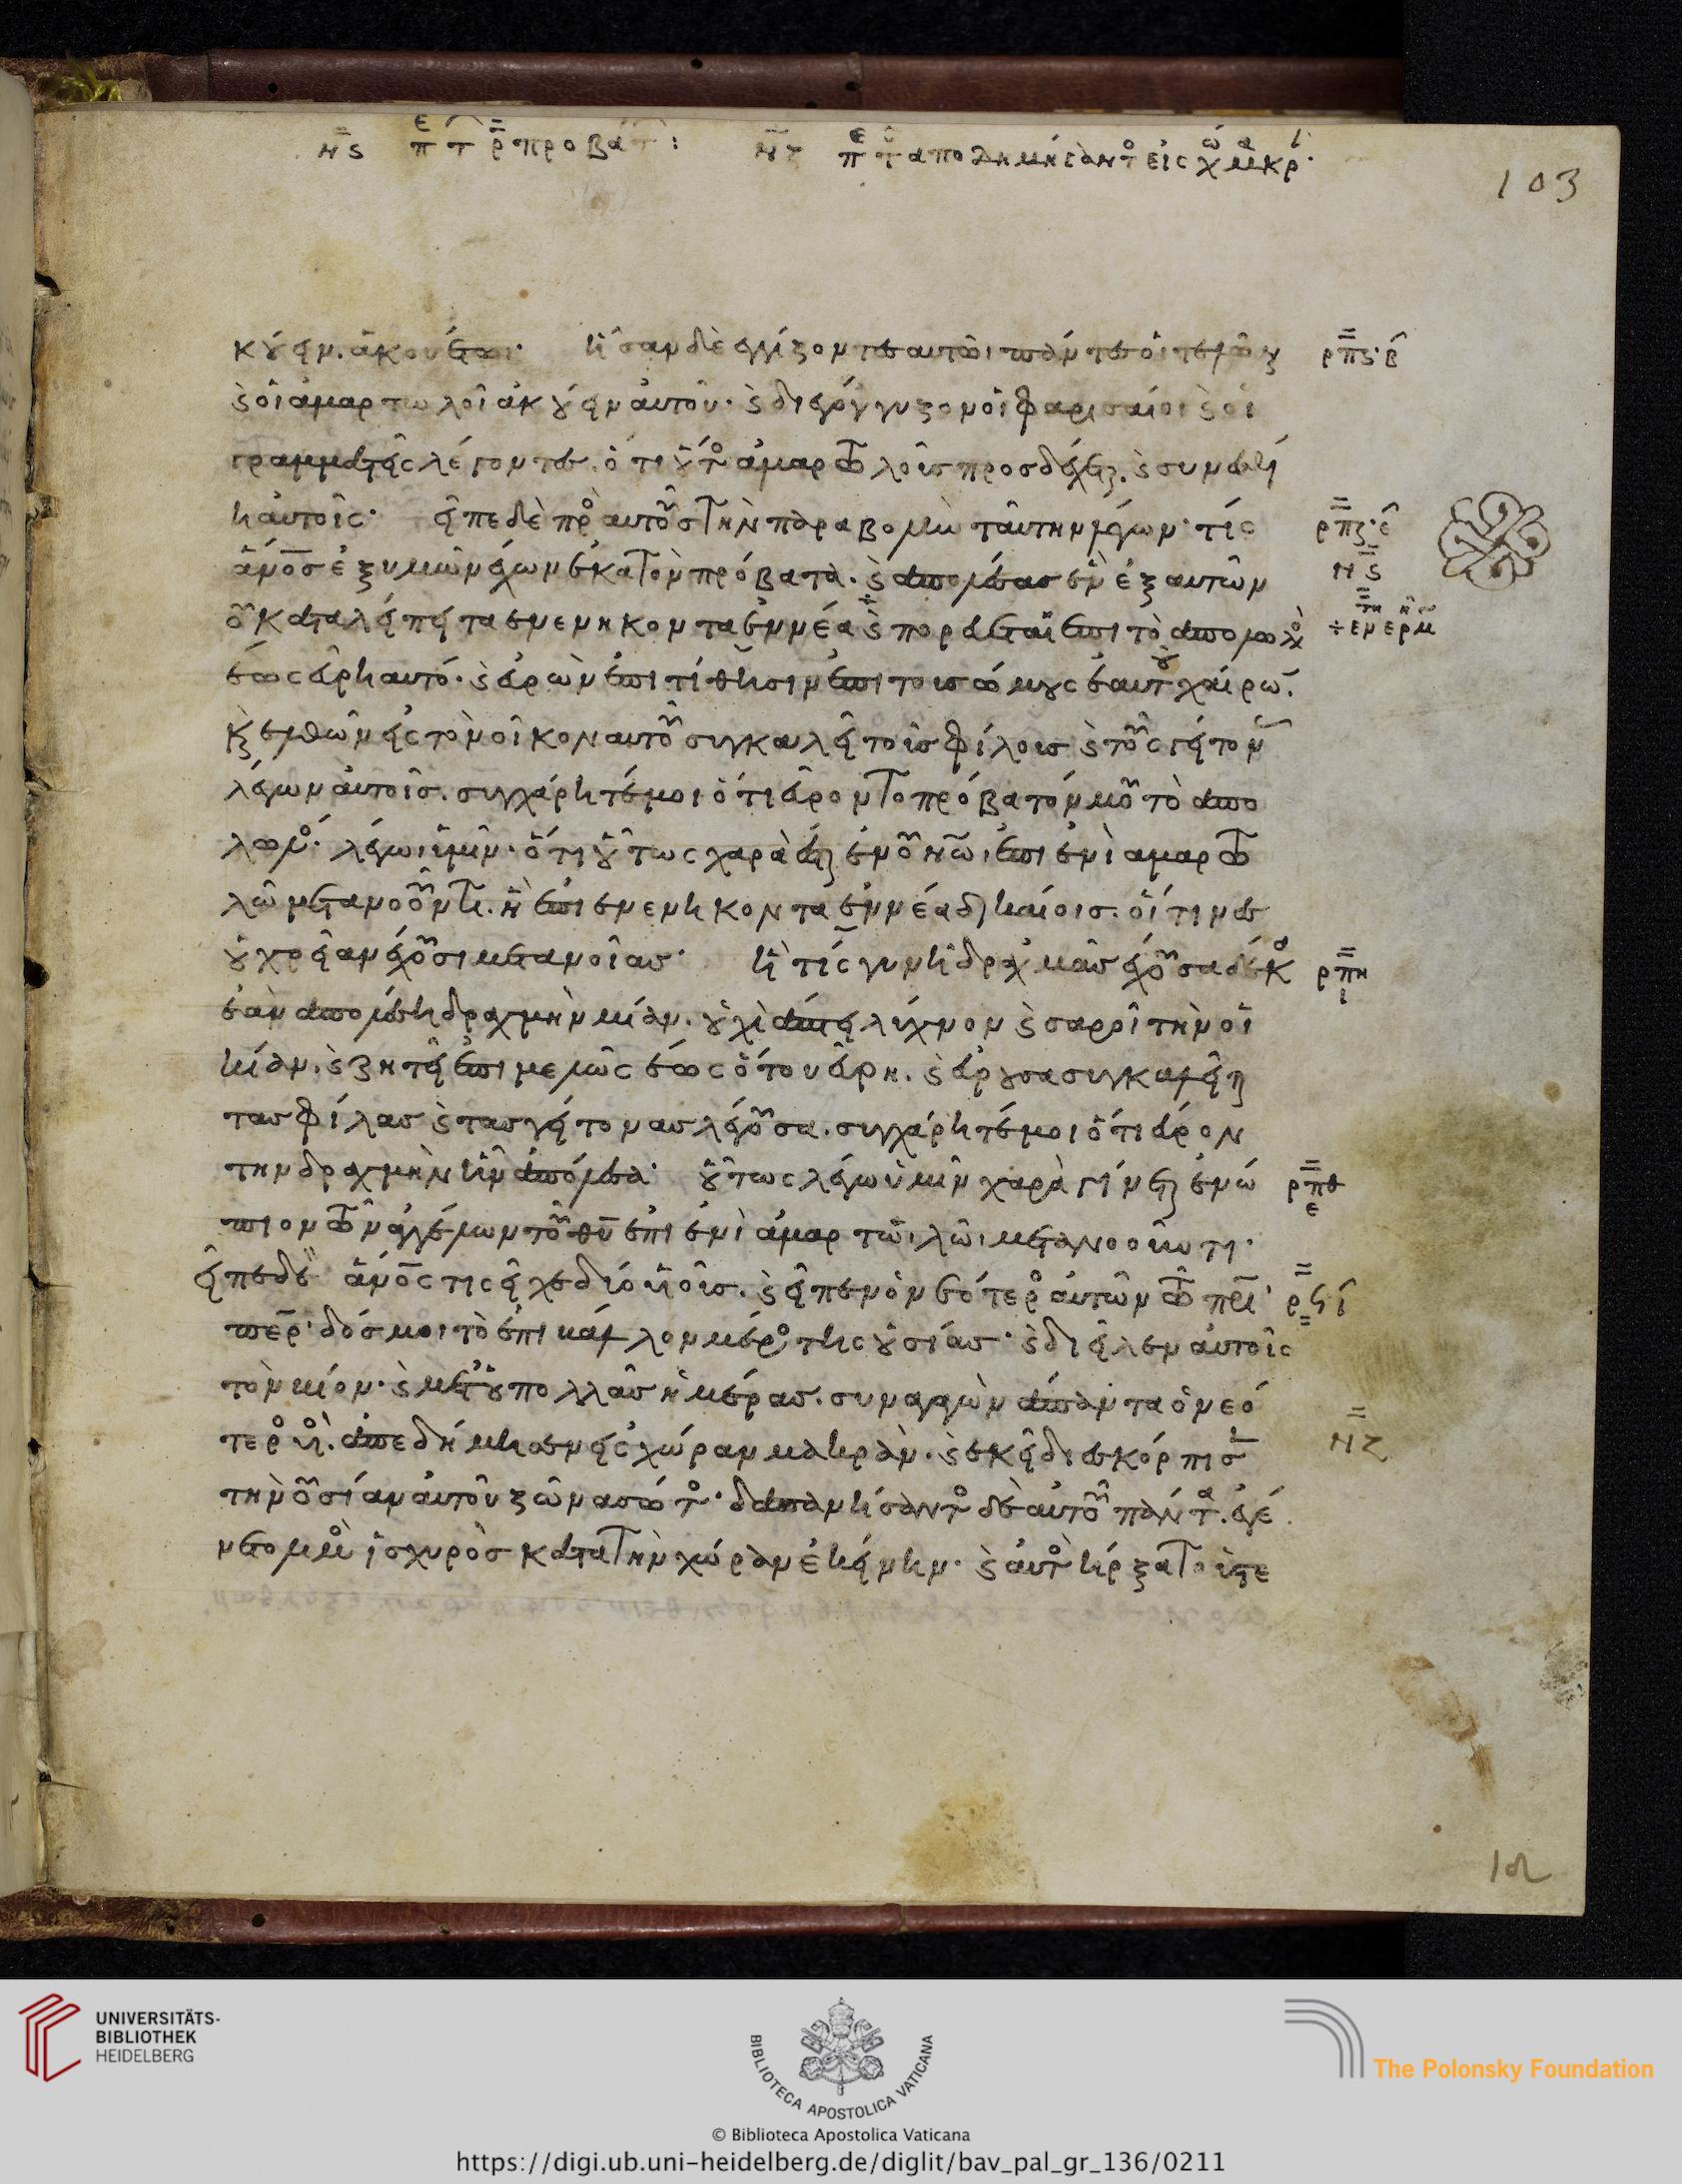 ν̅ς̅ πε τ ρ̅ προβάτ : ν̅ζ̅ πε τ̑ αποδημήσαντο εἰς χώ μακρ
103
κύειν ἀκουέτω· ἦσαν δὲ ἐγγίζοντες αυτῶι πάντες οἱ τελῶναι ρ̅π̅ς̅ β
ϗ οἱ ἁμαρτωλοὶ ἀκούειν αὐτοῦ· ϗ διεγόγγυζον οἱ φαρισαῖοι ϗ οἱ
γραμματεῖς λέγοντες· ὅτι οὗτος ἁμαρτωλοὺς προσδέχεται, ϗ συνεσθί
ει αὐτοῖς· εἶπε δὲ πρὸς αυτοὺς τὴν παραβολὴν ταύτην λέγων· τίς ρ̅π̅ζ̅ ε
ἄνο̅σ ἐξ υμῶν ἔχων ἑκατὸν πρόβατα· ϗ ἀπολέσας ἓν ἐξ αυτῶν ν̅ς̅
οὐ καταλείπει τα ενενηκονταεννέα ϗ πορεύεται ἐπὶ τὸ ἀπολωλὸς
ἕως εὕρη αυτό· ϗ εὑρὼν ἐπιτίθησιν ἐπι τους ὤμους ἑαυτοῦ χαίρων·
ϗ ελθὼν εἰς τὸν οἶκον αυτοῦ συγκαλεῖ τοὺς φίλους ϗ τοὺς γείτον
λέγων αὐτοῖς· συγχάρητέ μοι ὅτι εὗρον το πρόβατόν μου τὸ ἀπο
λωλός· λέγω ὑμῖν· ὅτι οὕτως χαρὰ ἔσται ἐν οὐνῶ, ἐπι ἑνὶ αμαρτω
λῶ μετανοοῦντι· ἢ ἐπι ενενηκονταεννέα δικαίοις· οἵτινες
οὐ χρείαν ἔχουσι μετανοίας· ἢ τίς γυνὴ δραχμὰς ἔχουσα δέκα ρ̅π̅η̅ ι
ἐὰν ἀπολέση δραχμὴν μίαν· οὐχὶ ἅπτει λύχνον ϗ σαροῖ τὴν οἰ
κίαν· ϗ ζητεῖ ἐπιμελῶς ἕως ὅτου εὕρη. ϗ εὑροῦσα συγκαλεῖται
τας φίλας ϗ τας γείτονας λέγουσα. συγχάρητέ μοι ὅτι εὗρον
την δραχμὴν ἣν ἀπώλεσα· οὕτως λέγω ὑμῖν χαρὰ γίνεται ἐνώ ρ̅π̅θ̅ ε
πιον τῶν ἀγγέλων τοῦ θ̅υ̅ ἐπὶ ἑνὶ ἁμαρτωλῶι μετανοοῦντι·
εἶπε δε ἄνο̅ς τις εἶχε δύο υἱοὺς· ϗ εἶπεν ὁ νεώτερος αὐτῶν τῶ π̅ρ̅ι̅· ρ̅ϟ̅ ι
π̅ε̅ρ̅· δός μοι τὸ ἐπιβάλλον μέρος της οὐσίας· ϗ διεῖλεν αὐτοῖς
τὸν βίον· ϗ μετ' οὐ πολλὰς ἡμέρας· συναγαγὼν ἅπαντα ὁ νεώ
τερος υἱὸς· ἀπεδήμησεν εἰς χώραν μακρὰν· ϗ ἐκεῖ διεσκόρπισε ν̅ζ̅
τὴν οὐσίαν αὐτοῦ ζῶν ασώτως· δαπανήσαντος δὲ αὐτοῦ πάντα· ἐγέ
νετο λιμὸς ἰσχυρὸς κατα τὴν χώραν ἐκείνην· ϗ αὐτὸς ἤρξατο ὑστε
UNIVERSITÄTS-
BIBLIOTHEK
HEIDELBERG
BIBLIOTECA APOSTOLICA VATICANA
The Polonsky Foundation
© Biblioteca Apostolica Vaticana
https://digi.ub.uni-heidelberg.de/diglit/bav_pal_gr_136/0211